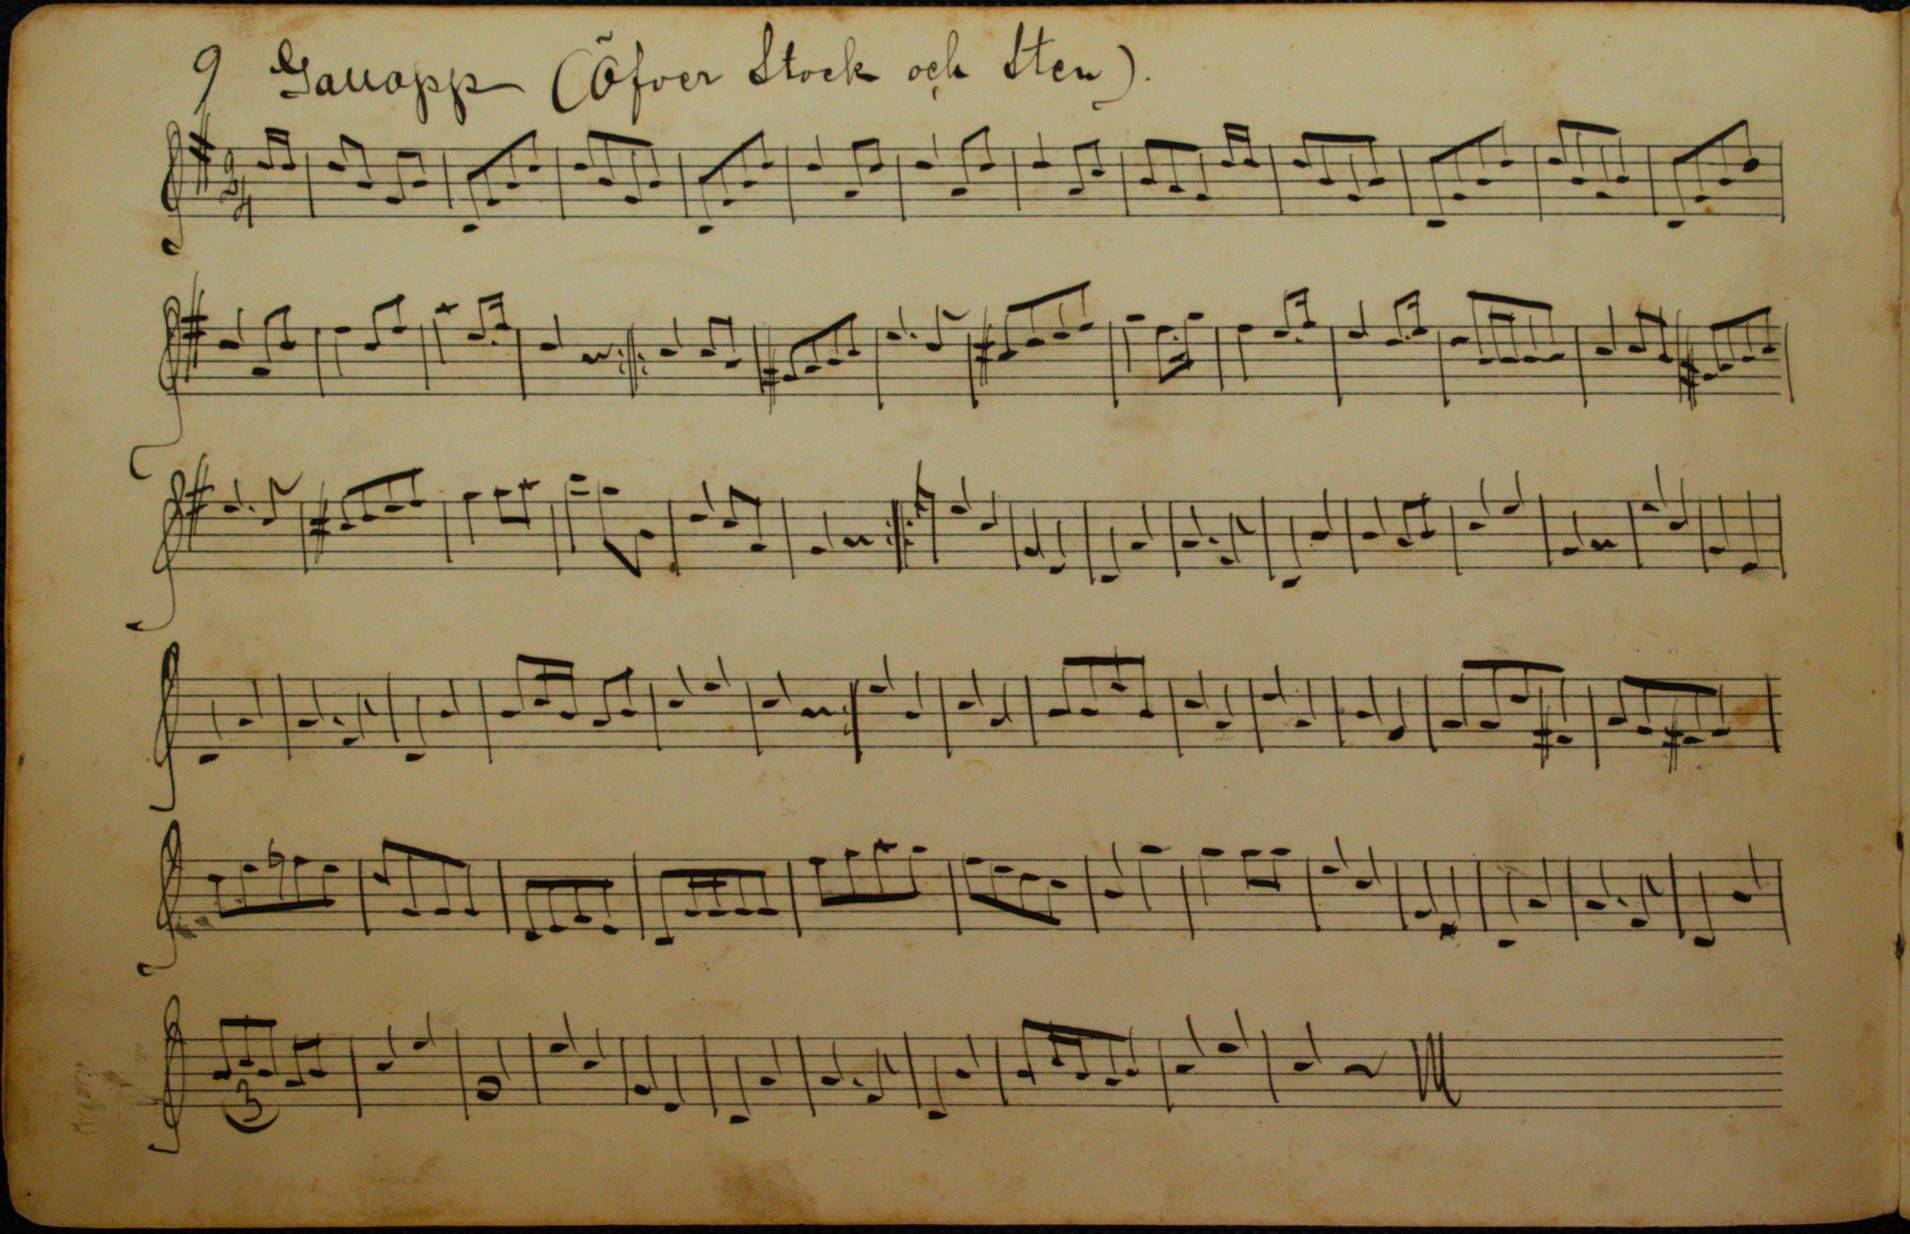 9 Gauopp (Öfver Stock och Sten).
2/4
3